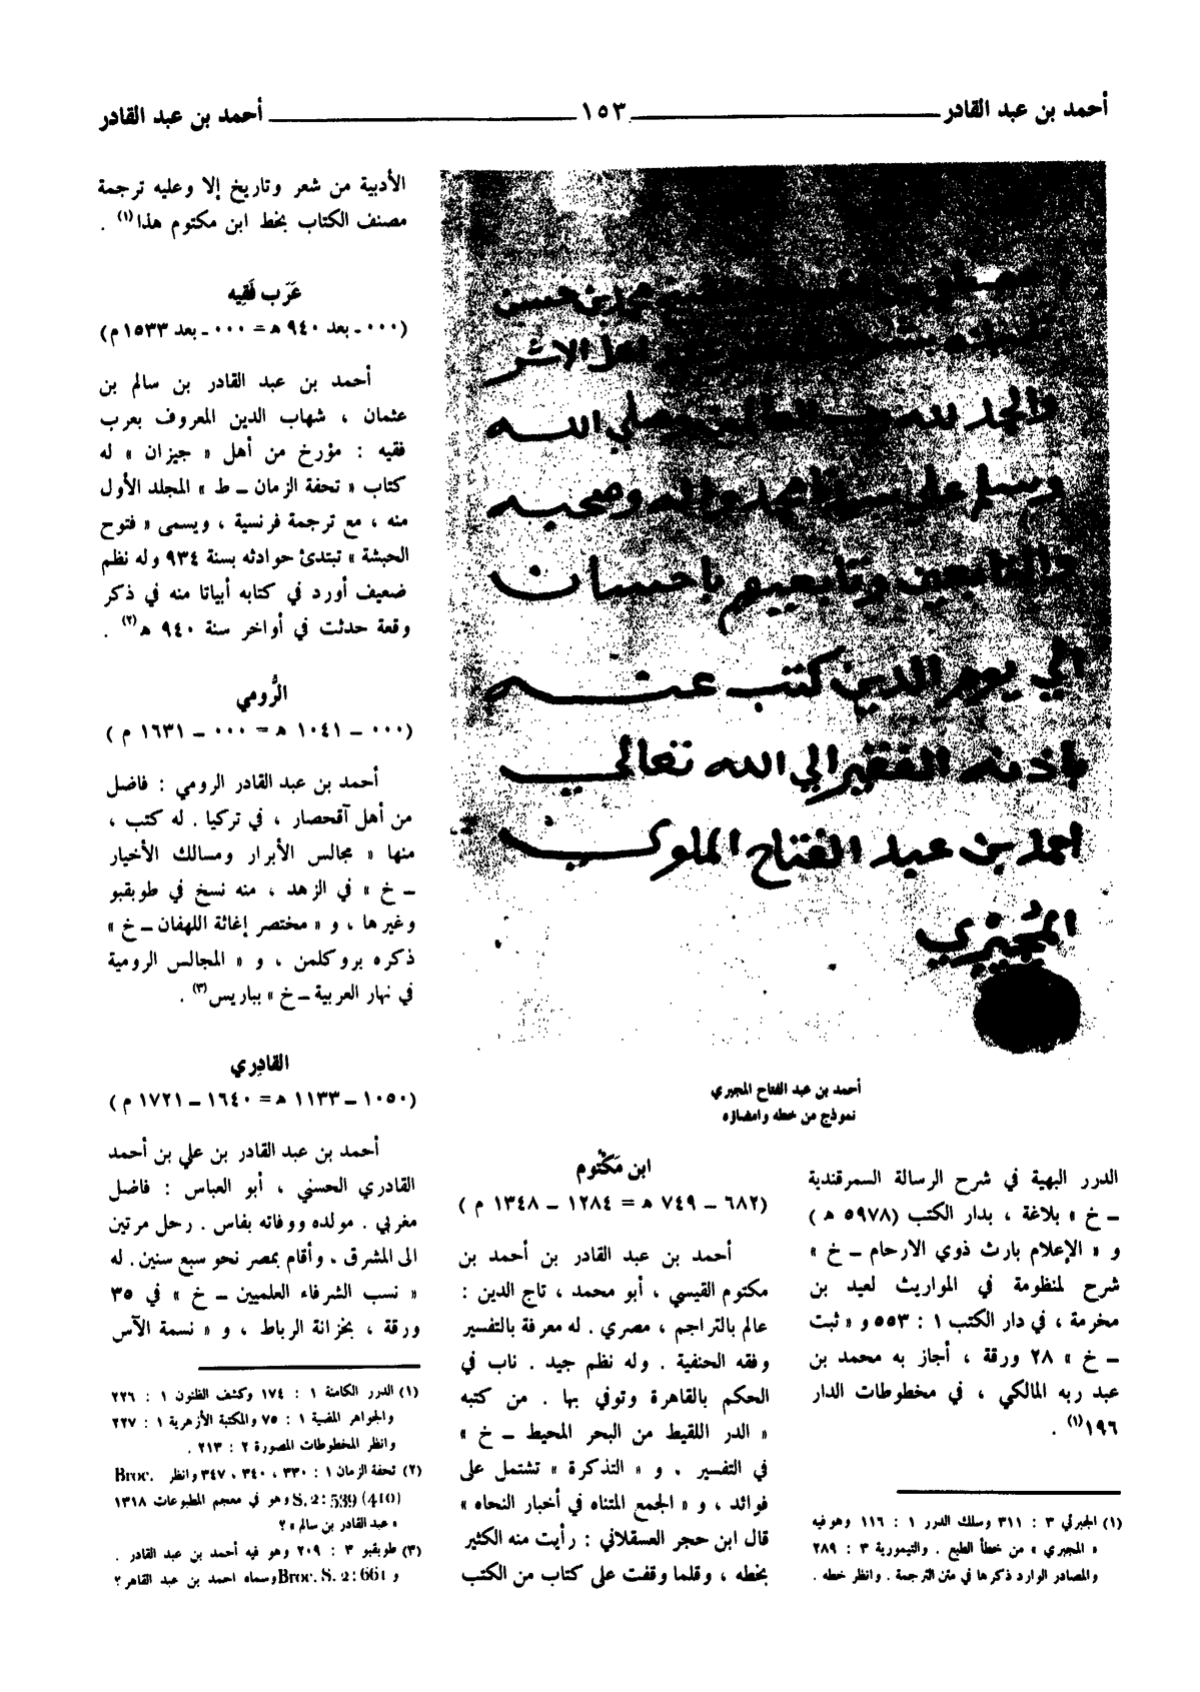 أحمد بن عبد القادر ١٥٣ أحمد بن عبد القادر
محمد بن حسن
أهل الاثر
والحمد لله رب العالمين وصلي الله
وسلم على سيدنا محمد واله وصحبه
والتابعين وتابعيهم بإحسان
الي يوم الدين كتب عنه
باذنه الفقير الي الله تعالي
احمد بن عبد الفتاح الملوي
المُجيزي
أحمد بن عبد الفتاح المجيري
نموذج من خطه وامضاؤه
الدرر البهية في شرح الرسالة السمرقندية
ـ خ » بلاغة ، بدار الكتب (٥٩٧٨ هـ )
و « الإعلام بارث ذوي الارحام ـ خ »
شرح لمنظومة في المواريث لعيد بن
مخرمة ، في دار الكتب ١ : ٥٥٣ و « ثبت
ـ خ » ٢٨ ورقة ، أجاز به محمد بن
عبد ربه المالكي ، في مخطوطات الدار
١٩٦(١) .
(١) الجبرتي ٣ : ٣١١ وسلك الدرر ١ : ١١٦ وهو فيه
« المجيري » من خطأ الطبع . والتيمورية ٣ : ٢٨٩
والمصادر الوارد ذكرها في متن الترجمة . وانظر خطه .
ابن مَكْتُوم
(٦٨٢ – ٧٤٩ هـ = ١٢٨٤ – ١٣٤٨ م )
أحمد بن عبد القادر بن أحمد بن
مكتوم القيسي ، أبو محمد ، تاج الدين :
عالم بالتراجم ، مصري . له معرفة بالتفسير
وفقه الحنفية . وله نظم جيد . ناب في
الحكم بالقاهرة وتوفي بها . من كتبه
« الدر اللقيط من البحر المحيط ـ خ »
في التفسير . و « التذكرة » تشتمل على
فوائد ، و « الجمع المتناه في أخبار النحاه »
قال ابن حجر العسقلاني : رأيت منه الكثير
بخطه ، وقلما وقفت على كتاب من الكتب
الأدبية من شعر وتاريخ إلا وعليه ترجمة
مصنف الكتاب بخط ابن مكتوم هذا(١) .
عَرَب فَقِيه
(٠٠٠ ـ بعد ٩٤٠ هـ = ٠٠٠ ـ بعد ١٥٣٣ م)
أحمد بن عبد القادر بن سالم بن
عثمان ، شهاب الدين المعروف بعرب
فقيه : مؤرخ من أهل « جيزان » له
كتاب « تحفة الزمان ـ ط » المجلد الأول
منه ، مع ترجمة فرنسية ، ويسمى « فتوح
الحبشة » تبتدئ حوادثه بسنة ٩٣٤ وله نظم
ضعيف أورد في كتابه أبياتا منه في ذكر
وقعة حدثت في أواخر سنة ٩٤٠ هـ(٢) .
الرُّومي
(٠٠٠ – ١٠٤١ هـ = ٠٠٠ – ١٦٣١ م )
أحمد بن عبد القادر الرومي : فاضل
من أهل آقحصار ، في تركيا . له كتب ،
منها « مجالس الأبرار ومسالك الأخيار
ـ خ » في الزهد ، منه نسخ في طوبقبو
وغيرها ، و « مختصر إغاثة اللهفان ـ خ »
ذكره بروكلمن ، و « المجالس الرومية
في نهار العربية ـ خ » بباريس(٣) .
القادِري
(١٠٥٠ – ١١٣٣ هـ = ١٦٤٠ – ١٧٢١ م )
أحمد بن عبد القادر بن علي بن أحمد
القادري الحسني ، أبو العباس : فاضل
مغربي . مولده ووفاته بفاس . رحل مرتين
الى المشرق ، وأقام بمصر نحو سبع سنين . له
« نسب الشرفاء العلميين ـ خ » في ٣٥
ورقة ، بخزانة الرباط ، و « نسمة الآس
(١) الدرر الكامنة ١ : ١٧٤ وكشف الظنون ١ : ٢٢٦
والجواهر المضية ١ : ٧٥ والمكتبة الأزهرية ١ : ٢٢٧
وانظر المخطوطات المصورة ٢ : ٢١٣ .
(٢) تحفة الزمان ١ : ٣٣٠ ، ٣٤٠ ، ٣٤٧ وانظر Broc.
S. 2 : 539 (410) وهو في معجم المطبوعات ١٣١٨
« عبد القادر بن سالم » ؟
(٣) طوبقبو ٣ : ٢٠٩ وهو فيه أحمد بن عبد القادر .
و Broc. S. 2 : 661 وسماه احمد بن عبد القاهر ؟